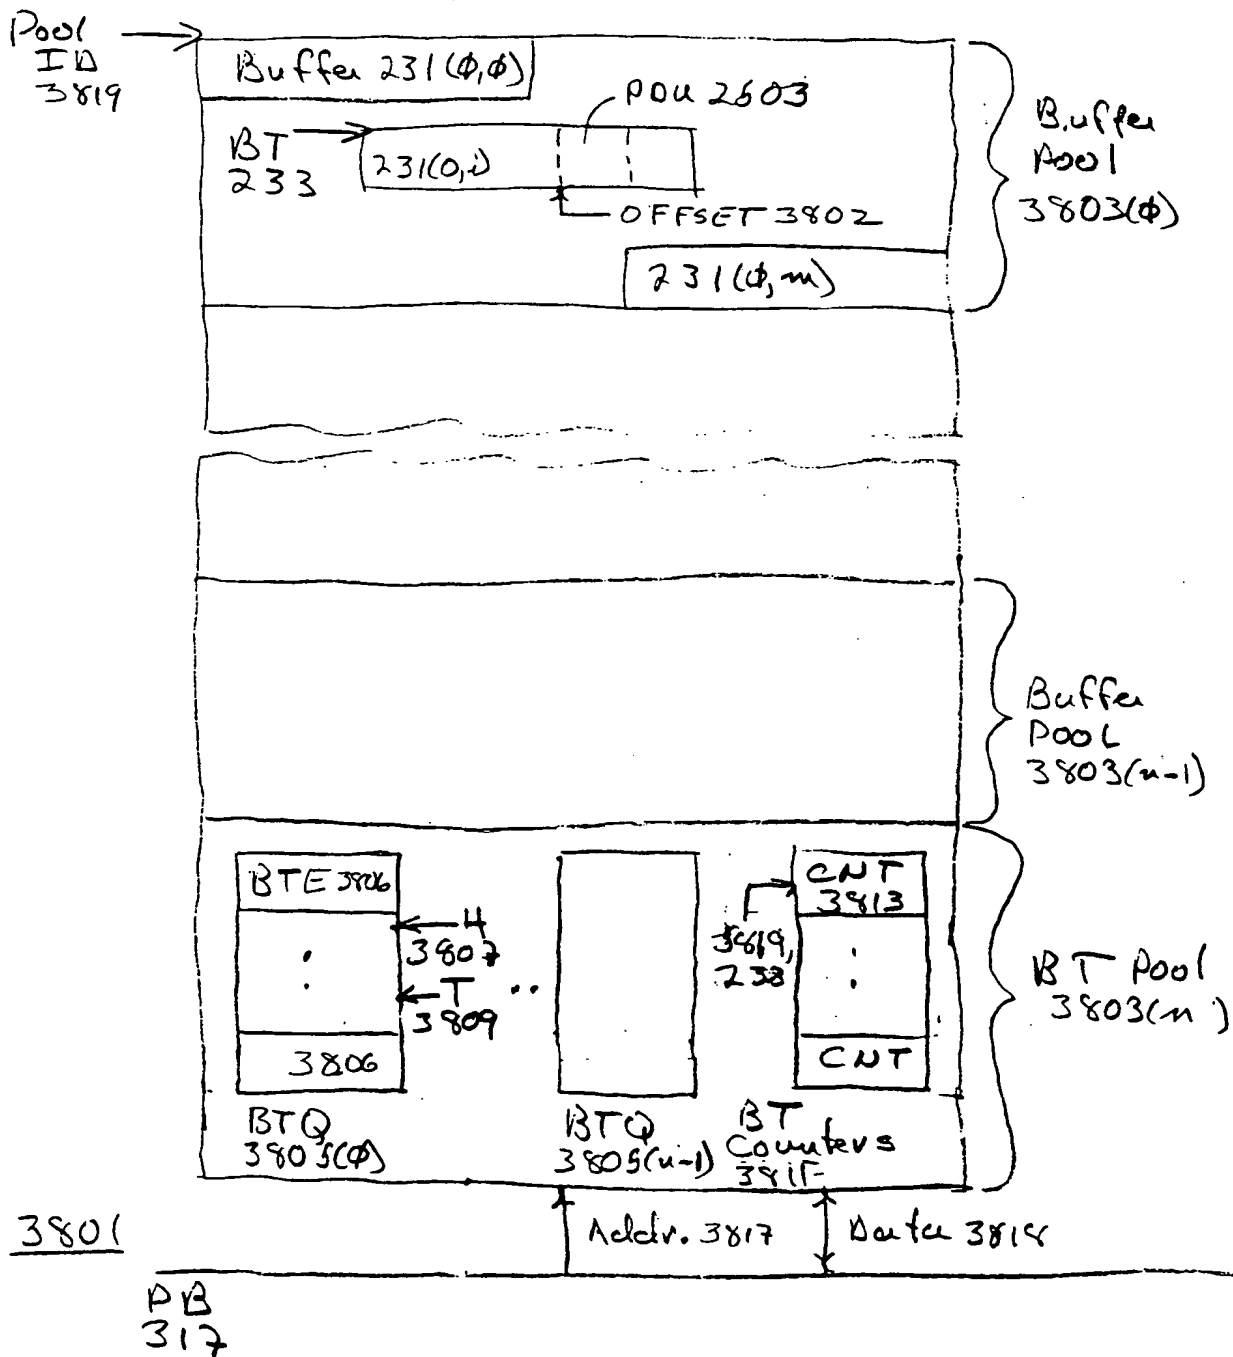 Pool
ID
3819
Buffer 231(φ,φ)
PDU 2603
BT
233
231(0,i)
OFFSET 3802
231(φ,m)
Buffer
Pool
3803(φ)
Buffer
POOL
3803(n-1)
BTE 3806
H
3807
T
3809
3806
BTQ
3805(φ)
BTQ
3805(n-1)
3819,
233
CNT
3813
CNT
BT
Counters
BT Pool
3803(n)
3801
Addr. 3817
Data 3818
PB
317